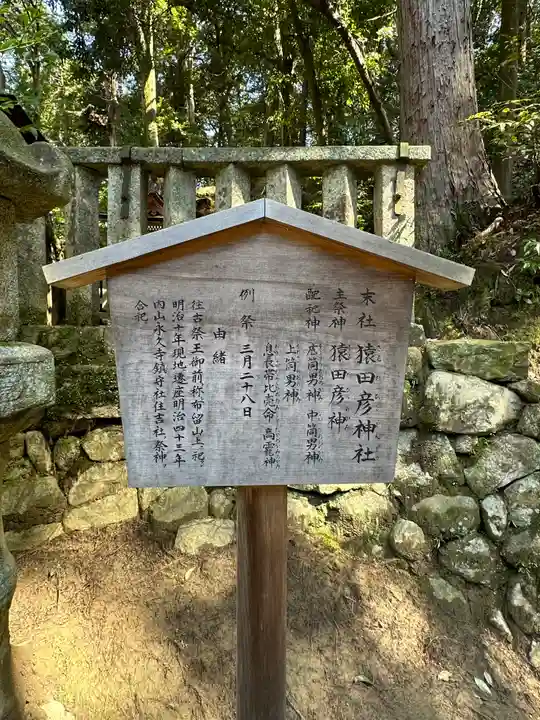 末社 猿田彦神社
主祭神 猿田彦神
配祀神 底筒男神 中筒男神
上筒男神
息長帯比売命 高龗神
例祭 三月二十八日
由緒
往古祭王御前称布留山上ニ祀。
明治十年現地遷座明治四十三年
内山永久寺鎮守社住吉社祭神。
合祀